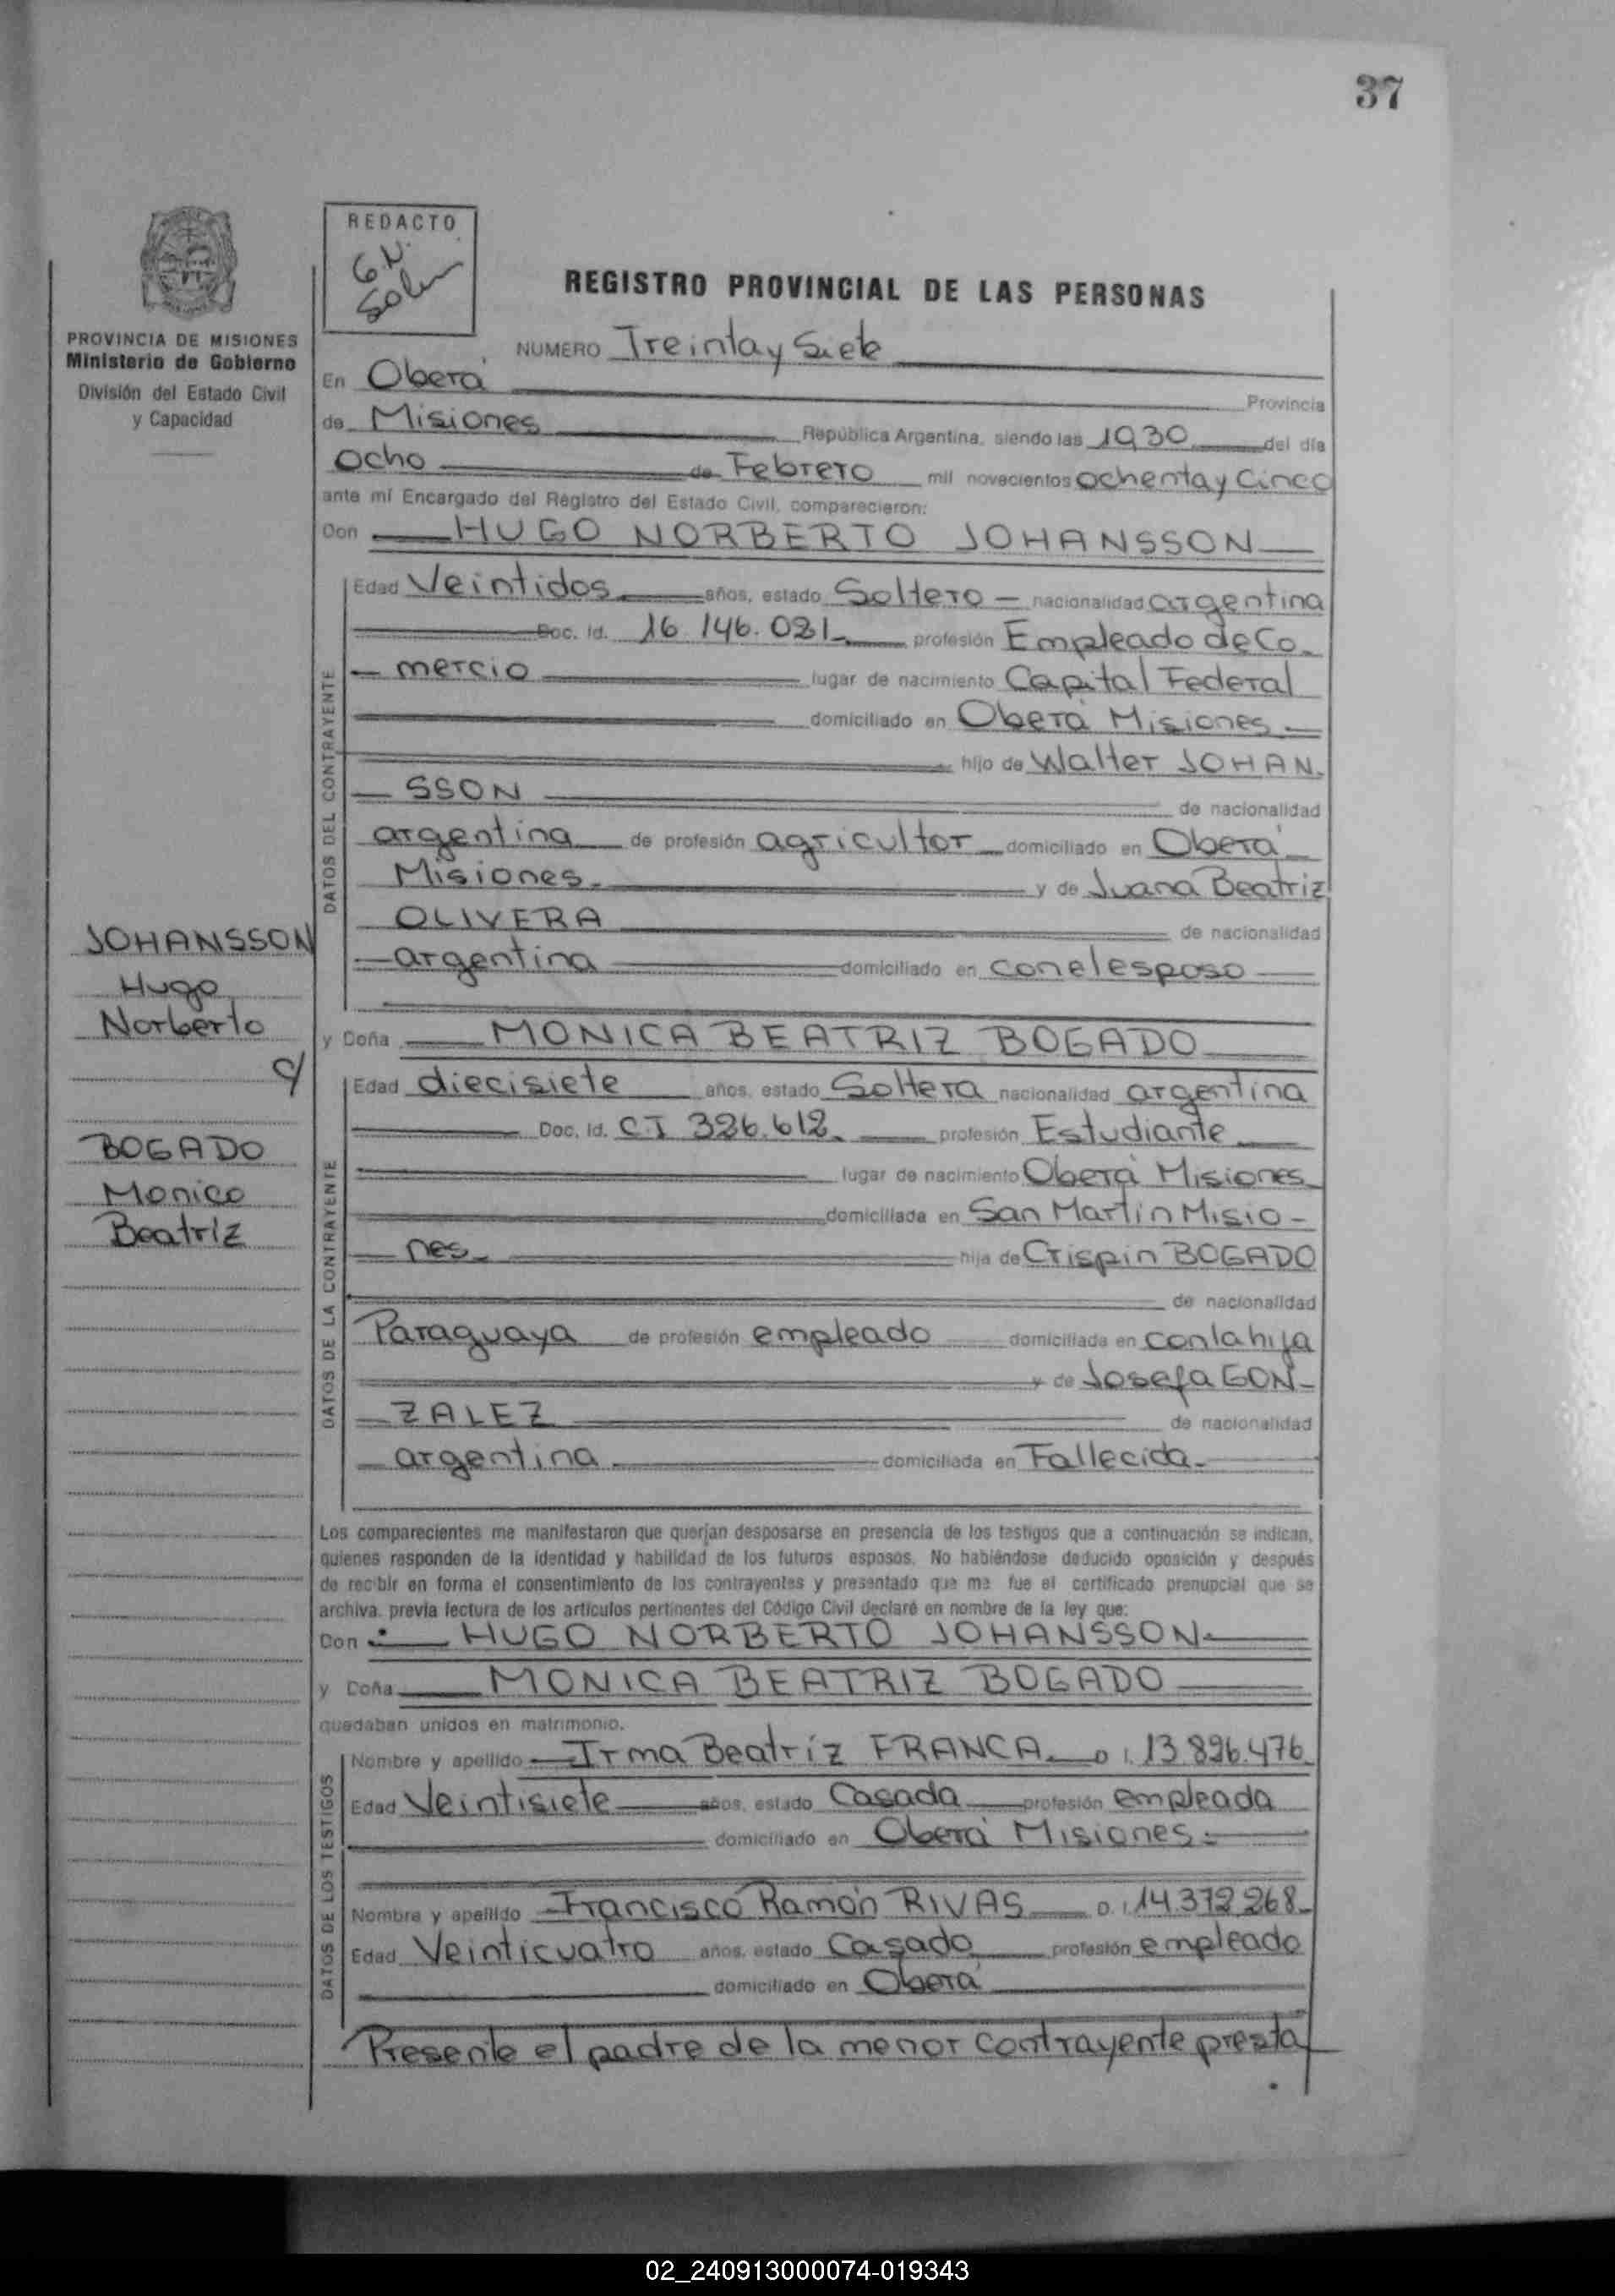 37
REDACTO
G.N.
REGISTRO PROVINCIAL DE LAS PERSONAS
PROVINCIA DE MISIONES
Ministerio de Gobierno
División del Estado Civil
y Capacidad
NUMERO Treinta y Siete
En Oberá Provincia
de Misiones República Argentina, siendo las 19,30 del día
ocho de Febrero mil novecientos ochenta y Cinco
ante mí Encargado del Registro del Estado Civil, comparecieron:
Don HUGO NORBERTO JOHANSSON
DATOS DEL CONTRAYENTE
Edad Veintidos años, estado Soltero - nacionalidad argentina
Doc. Id. 16.146.021.- profesión Empleado de Co-
mercio lugar de nacimiento Capital Federal
domiciliado en Oberá Misiones.-
hijo de Walter JOHAN-
SSON de nacionalidad
argentina de profesión agricultor domiciliado en Oberá
Misiones.- y de Juana Beatriz
OLIVERA de nacionalidad
argentina domiciliado en con el esposo
JOHANSSON
Hugo
Norberto
c/
BOGADO
Monica
Beatriz
y Doña MONICA BEATRIZ BOGADO
DATOS DE LA CONTRAYENTE
Edad diecisiete años, estado Soltera nacionalidad argentina
Doc. Id. C.I 326.612.- profesión Estudiante
lugar de nacimiento Oberá Misiones
domiciliada en San Martin Misio-
nes.- hija de Crispin BOGADO
de nacionalidad
Paraguaya de profesión empleado domiciliada en con la hija
y de Josefa GON-
ZALEZ de nacionalidad
argentina domiciliada en Fallecida.-
Los comparecientes me manifestaron que querían desposarse en presencia de los testigos que a continuación se indican,
quienes responden de la identidad y habilidad de los futuros esposos. No habiéndose deducido oposición y después
de recibir en forma el consentimiento de los contrayentes y presentado que me fue el certificado prenupcial que se
archiva, previa lectura de los artículos pertinentes del Código Civil declaré en nombre de la ley que:
Don HUGO NORBERTO JOHANSSON
y Doña MONICA BEATRIZ BOGADO
quedaban unidos en matrimonio.
DATOS DE LOS TESTIGOS
Nombre y apellido Irma Beatríz FRANCA.- D.I. 13.896.476
Edad Veintisiete años, estado Casada profesión empleada
domiciliado en Oberá Misiones.-
Nombre y apellido Francisco Ramón RIVAS D.I. 14.372.268-
Edad Veinticuatro años, estado Casado profesión empleado
domiciliado en Oberá
Presente el padre de la menor contrayente presta
02_240913000074-019343